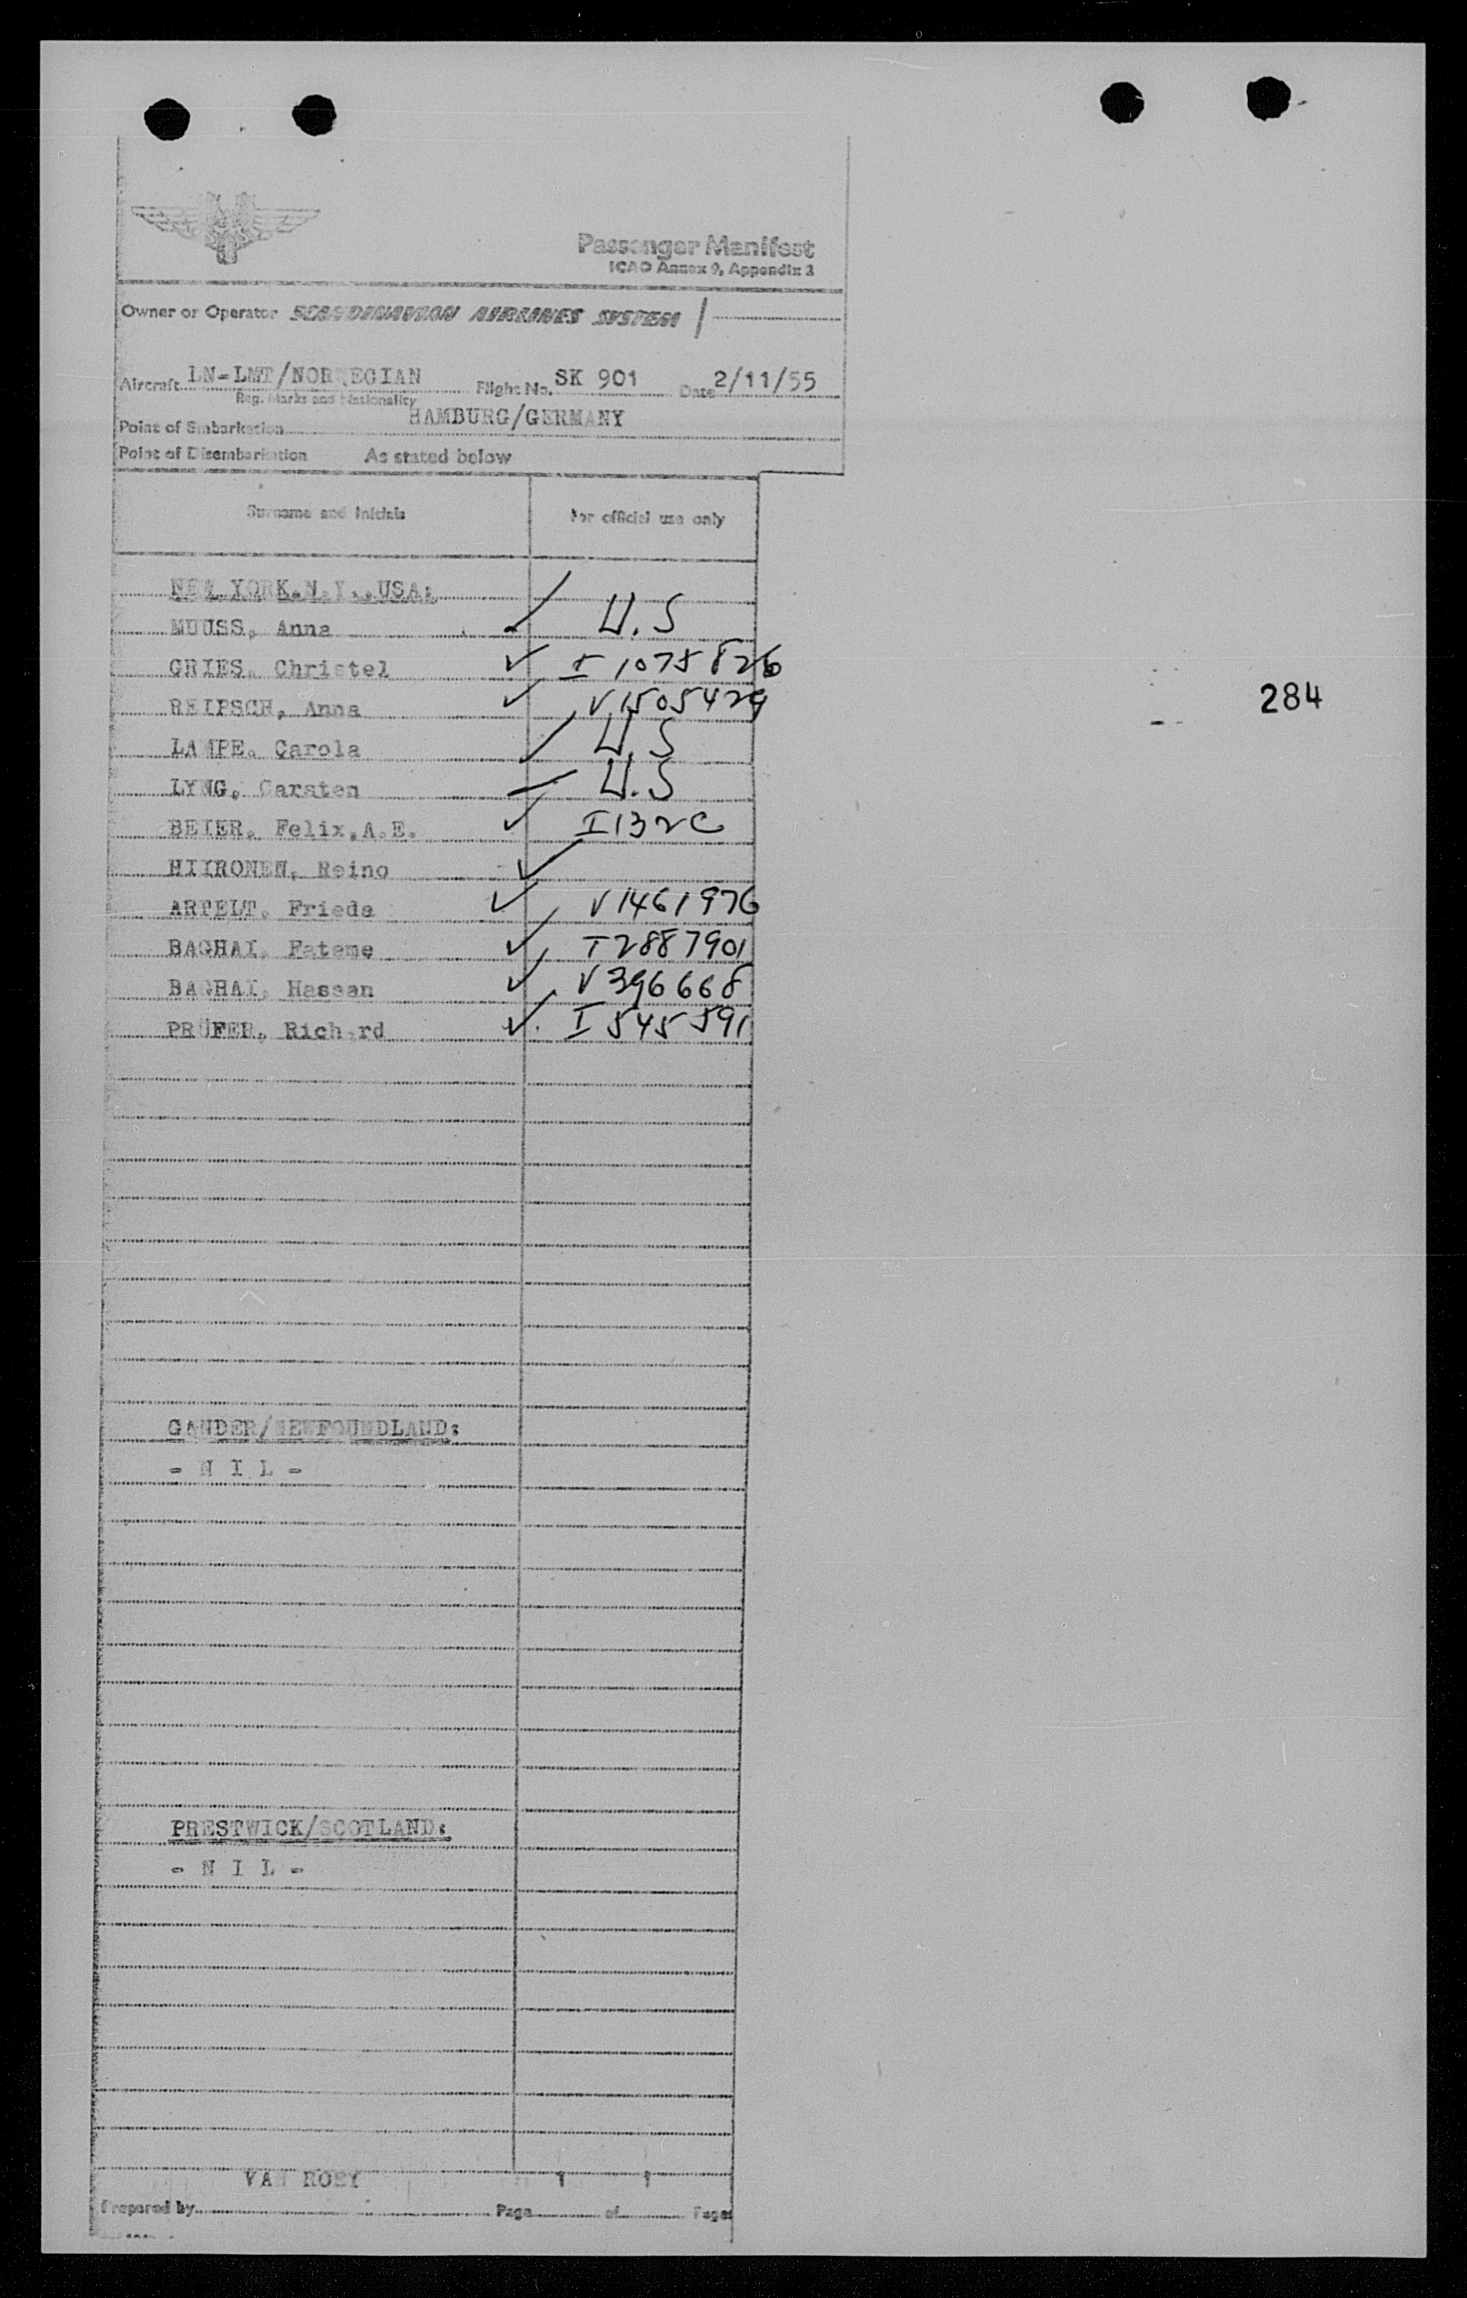 Passenger Manifest
ICAO Annex 9, Appendix 3
Owner or Operator SCANDINAVIAN AIRLINES SYSTEM
Aircraft LN-LMT/NORWEGIAN Flight No. SK 901 Date 2/11/55
Reg. Marks and Nationality
Point of Embarkation HAMBURG/GERMANY
Point of Disembarkation As stated below
Surname and Initials For official use only
NEW YORK.N.Y.,USA:
MUUSS, Anna U.S
GRIES, Christel I 1075826
REIPSCH, Anna V1505429
284
LAMPE, Carola U.S
LYNG, Carsten U.S
BEIER, Felix,A.E. I132C
HIIRONEN, Reino
ARTELT, Frieda V1461976
BAGHAI, Fateme I2887901
BAGHAI, Hassan V396668
PRÜFER, Richard I545591
GANDER/NEWFOUNDLAND:
- N I L -
PRESTWICK/SCOTLAND:
- N I L -
Prepared by VAN ROEY Page 1 of 1 Pages